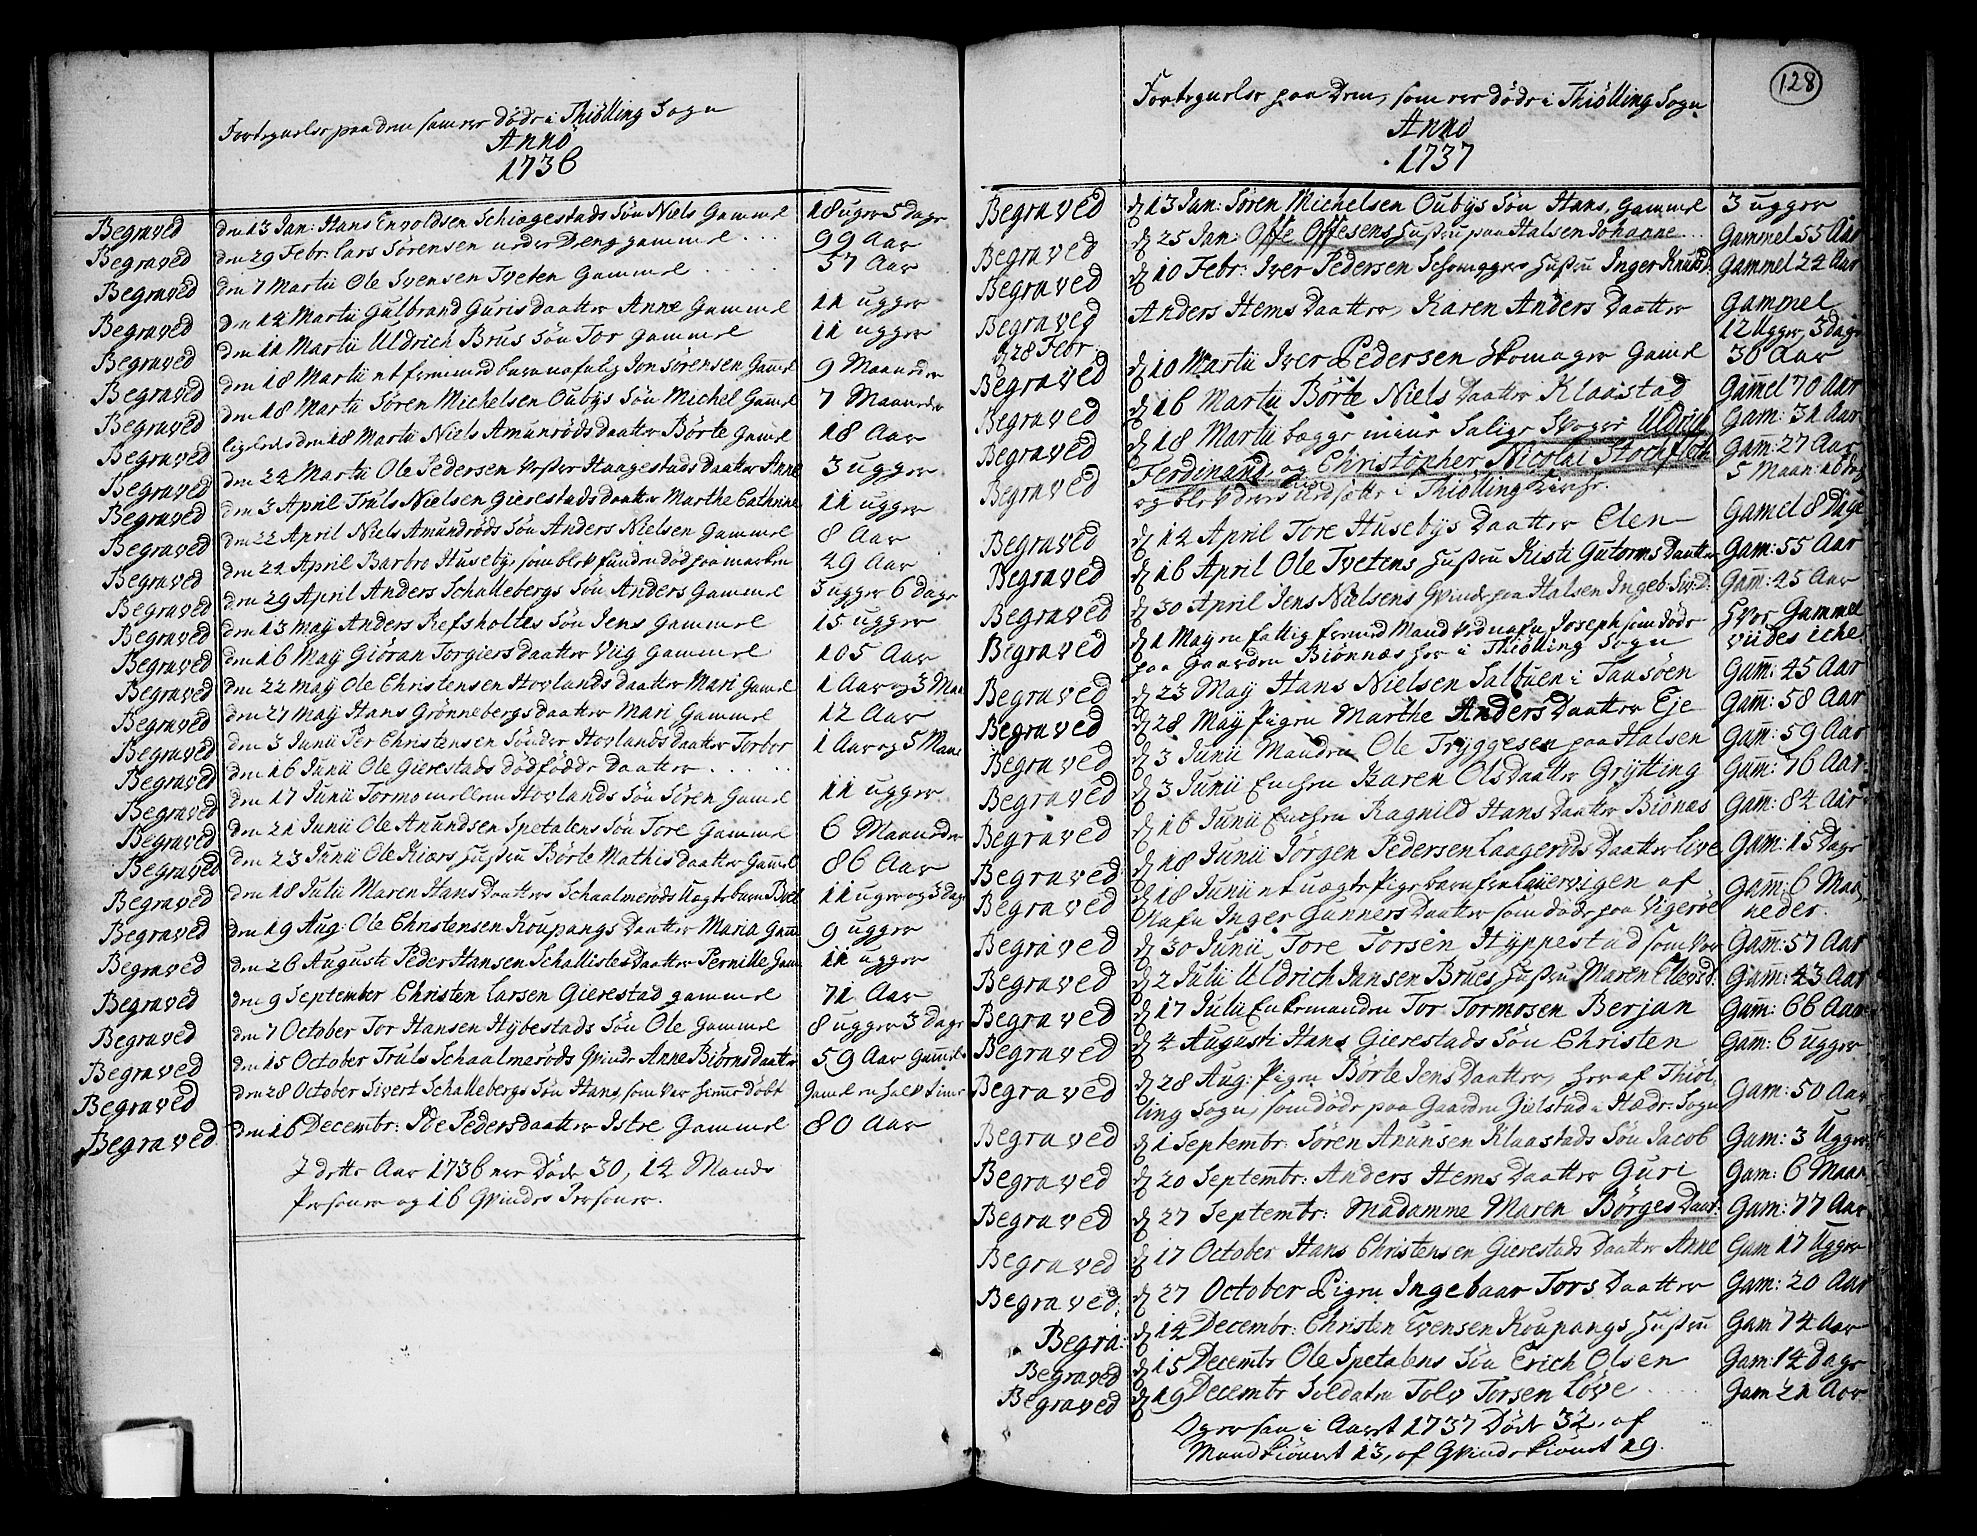 Fortegnelse paa dem som ere døde i Thiølling Sogn
Anno
1736
Begraved den 13 Jan: Hans Envoldsen Schiægestads Søn Niels Gammel 18 uger 5 dage
Begraved den 29 Febr. Lars Sørensen gammel 99 Aar
Begraved den 7 Martii Ole Svensen Tveten Gammel 57 Aar
Begraved den 14 Martii Gulbrand Guris daatter Anne Gammel 11 ugger
Begraved den 11 Martii Uldrich Brus Søn Tor Gammel 11 ugger
Begraved den 18 Martii et fremmed barn nafnlig Jon Sørensen Gamel 9 Maaneder
Begraved den 18 Martii Søren Michelsen Oubÿs Søn Michel Gamel 7 Maaneder
Begraved ligeledes den 18 Martii Niels Amunrøds daatter Børte Gamel 18 Aar
Begraved den 24 Martii Ole Pedersen Vester Haagestads daatter Anne 3 ugger
Begraved den 3 April Truls Nielsen Gierestads daatter Marthe Cathrine 11 ugger
Begraved den 22 April Niels Amundrøds Søn Anders Nielsen Gammel 8 Aar
Begraved den 24 April Barbro Husebÿ, som blef funden død paa marken 49 Aar
Begraved den 29 April Anders Schallebergs Søn Anders Gammel 3 ugger 6 dage
Begraved den 13 May Anders Refsholtes Søn Jens Gammel 15 ugger
Begraved den 16 May Giøran Torgiers daatter Viig Gammel 105 Aar
Begraved den 22 May Ole Christensen Hovlands daatter Mari Gamel 1 Aar og 3 Maa
Begraved den 27 May Hans Grønnebergs daatter Mari Gammel 12 Aar
Begraved den 3 Junii Per Christensen Sønder Hovlands daatter Torbor 1 Aar og 5 Maane
Begraved den 16 Junii Ole Gierestads dødfødde Daatter
Begraved den 17 Junii Tormo mellem Hovlands Søn Søren Gamel 11 ugger
Begraved den 21 Junii Ole Anundsen Spetalens Søn Tore Gammel 6 Maaneder
Begraved den 23 Junii Ole Kiærs Hustru Børte Mathis daatter Gamel 86 Aar
Begraved den 18 Julii Maren Hans Daatters Schaalmerøds Uægte barn 11 uger og 3 dag
Begraved den 19 Aug: Ole Christensen Koupangs Daatter Maria Gam 9 ugger
Begraved den 26 Augusti Peder Hansen Schallistes Daatter Pernille Gam 11 ugger
Begraved den 9 September Christen Larsen Gierestad gammel 71 Aar
Begraved den 7 October Tor Hansen Hÿbestads Søn Ole Gammel 8 ugger 3 dage
Begraved den 15 October Truls Schaalmerøds Qvinde Anne Biørns daatter 59 Aar Gamel
Begraved den 28 October Sivert Schallebergs Søn Hans, som var hiemme døbt Gamel en halv time
Begraved den 16 Decembr: Pedersdaatter Istre Gammel 80 Aar
I dette Aar 1736 ere Døde 30, 14 Mands
Personer og 16 Qvindes Personer.
128
Fortegnelse paa Dem, som ere døde i Thiølling Sogn
Anno
1737
Begraved d 13 Jan: Søren Michelsen Oubÿs Søn Hans, Gammel 3 ugger
Begraved d 25 Jan: Offe Offesens Hustru paa Halsen Johanne Gammel 55 Aar
Begraved d 10 Febr: Iver Pedersen Schomagers Hustru Inger Knutsd Gammel 24 Aar
Begraved d 28 Febr. Anders Hems Daatter, Karen Anders Daatter Gammel 12 Ugger, 3 dage
Begraved d 10 Martii Iver Pedersen Skomager Gamel 36 Aar
Begraved d 16 Martii Børte Niels Daatter Klaastad Gamel 70 Aar
Begraved d 18 Martii begge mine Salige Uldrich Gam: 31 Aar
Ferdinand og Christopher Nicolai Stochfleth Gam: 27 Aar
Begraved og blev deres Liig udsatte i Thiølling Kirche. 5 Maan: 16 dag
Begraved d 14 April Tore Husebÿs Daatter Elen Gamel 8 Dage
Begraved d 16 April Ole Tvetens Hustru Kisti Gutorms Daatter Gam: 55 Aar
Begraved d 30 April Jens Nielsens Qvinde paa Halsen Ingeb: Gam: 45 Aar
Begraved d 1 May en fattig fremmed Mand ved nafn Joseph som døde Hvor Gammel
paa Gaarden Biønnæs her i Thiølling Sogn viides iche
Begraved d 23 May Hans Nielsen Salbuen i Taasøen Gam: 45 Aar
Begraved d 28 May Pigen Marthe Anders Daatter Eje Gam: 58 Aar
Begraved d 3 Junii Manden Ole Trÿggesen paa Halsen Gam: 59 Aar
Begraved d 3 Junii Enchen Karen Olsdaatter Grÿtting Gam: 76 Aar
Begraved d 16 Junii Enchen Ragnild Hans Daatter Biønas Gam: 84 Aar
Begraved d 18 Junii Jørgen Pedersen Laagerøds Daatter Live Gam: 15 Dage
Begraved d 18 Junii et uægte Pige barn fra Laurvigen af Gam: 6 Maa
Begraved Nafn Inger Gunners Daatter som døde paa Vigerøe neder.
Begraved d 30 Junii Tore Torsen Hÿppestad Gam: 57 Aar
Begraved d 2 Julii Uldrich Jansen Brues Hustru Maren Gam: 43 Aar
Begraved d 17 Julii Enkemanden Tor Tormosen Berjan Gam: 66 Aar
Begraved d 4 Augusti Hans Gierestads Søn Christen Gam: 6 ugger
Begraved d 28 Aug: Pigen Børte Jens Daatter, her af Thiøl
ling Sogn, som døde paa Gaarden Gielstad i Hædr: Sogn Gam: 50 Aar
Begraved d 1 Septembr: Søren Anunsen Klaastads Søn Jacob Gam: 3 Ugger
Begraved d 20 Septembr: Anders Hems Daatter Guri Gam: 6 Maan
Begraved d 27 Septembr: Madamme Maren Børges Daat: Gam: 77 Aar
Begraved d 17 October Hans Christensen Gierestads Daatter Anne Gam 17 Ugger
Begraved d 27 October Pigen Ingebaar Tors Daatter Gam: 20 Aar
Begra: d 14 Decembr: Christen Evensen Koupangs Hustru Gam 74 Aar
Begraved d 15 Decembr Ole Spetalens Søn Erich Olsen Gam: 14 Dage
Begraved d 19 Decembr Soldaten Tolv Torsen Løve Gam 21 Aar
Og ere saa i Aaret 1737 Døde 32, af
Mandkiønet 13, af Qvindekiønet 19.